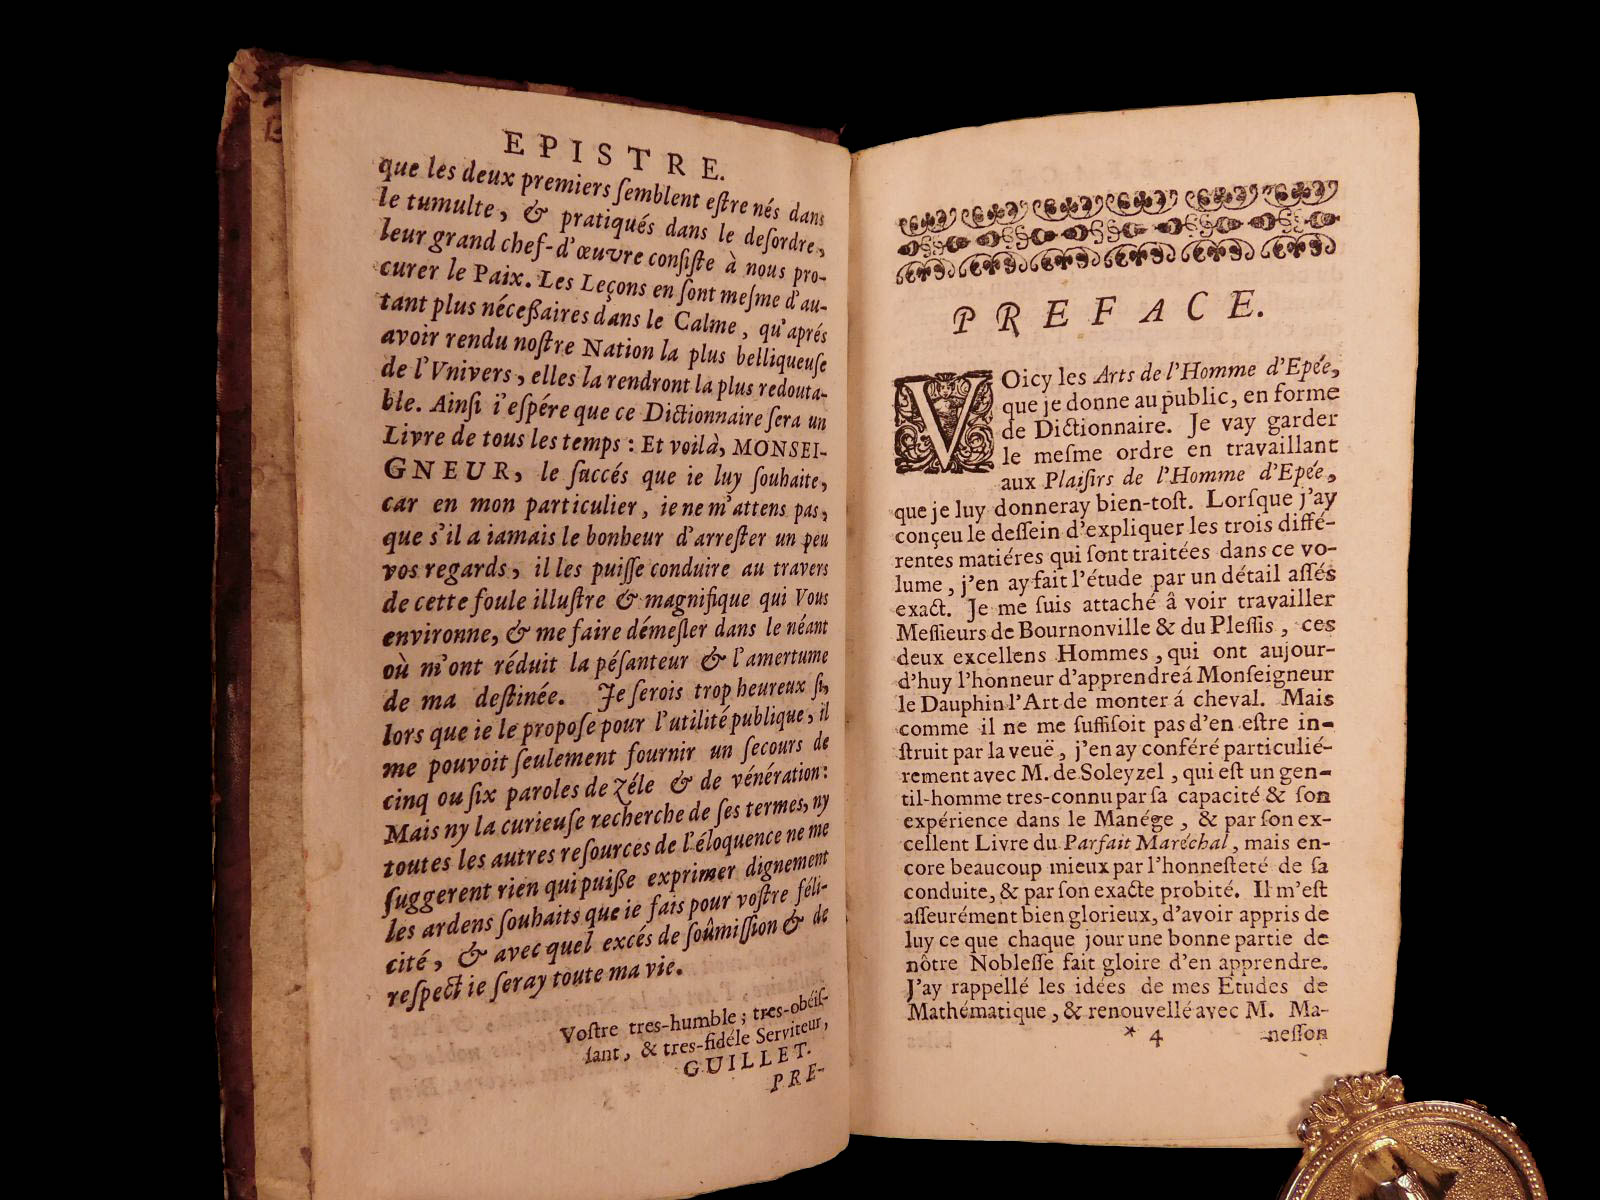 EPISTRE.
que les deux premiers ſemblent eſtre nés dans
le tumulte, & pratiqués dans le deſordre,
leur grand chef-d'œuvre conſiſte à nous pro-
curer le Paix. Les Leçons en ſont meſme d'au-
tant plus néceßaires dans le Calme, qu'aprés
avoir rendu noſtre Nation la plus belliqueuſe
de l'Vnivers, elles la rendront la plus redouta-
ble. Ainſi i'eſpére que ce Dictionnaire ſera un
Livre de tous les temps : Et voilà, MONSEI-
GNEUR, le ſuccés que ie luy ſouhaite,
car en mon particulier, ie ne m'attens pas,
que s'il a iamais le bonheur d'arreſter un peu
vos regards, il les puiſſe conduire au travers
de cette foule illuſtre & magnifique qui Vous
environne, & me faire démeſler dans le néant
où m'ont réduit la péſanteur & l'amertume
de ma deſtinée. Je ſerois trop heureux ſi,
lors que ie le propoſe pour l'utilité publique, il
me pouvoit ſeulement fournir un ſecours de
cinq ou ſix paroles de Zéle & de vénération:
Mais ny la curieuſe recherche de ſes termes, ny
toutes les autres reſources de l'éloquence ne me
ſuggerent rien qui puiße exprimer dignement
les ardens ſouhaits que ie fais pour voſtre féli-
cité, & avec quel excés de ſoûmiſſion & de
reſpect ie ſeray toute ma vie.
Voſtre tres-humble ; tres-obéiſ-
ſant, & tres-fidéle Serviteur,
GUILLET.
PRE-
PREFACE.
VOicy les Arts de l'Homme d'Epée,
que je donne au public, en forme
de Dictionnaire. Je vay garder
le meſme ordre en travaillant
aux Plaiſirs de l'Homme d'Epée,
que je luy donneray bien-toſt. Lorſque j'ay
conçeu le deſſein d'expliquer les trois diffé-
rentes matiéres qui ſont traitées dans ce vo-
lume, j'en ay fait l'étude par un détail aſſés
exact. Je me ſuis attaché â voir travailler
Meſſieurs de Bournonville & du Pleſſis, ces
deux excellens Hommes, qui ont aujour-
d'huy l'honneur d'apprendre á Monſeigneur
le Dauphin l'Art de monter á cheval. Mais
comme il ne me ſuffiſoit pas d'en eſtre in-
ſtruit par la veuë, j'en ay conféré particulié-
rement avec M. de Soleyzel, qui eſt un gen-
til-homme tres-connu par ſa capacité & ſon
expérience dans le Manége, & par ſon ex-
cellent Livre du Parfait Maréchal, mais en-
core beaucoup mieux par l'honneſteté de ſa
conduite, & par ſon exacte probité. Il m'eſt
aſſeurément bien glorieux, d'avoir appris de
luy ce que chaque jour une bonne partie de
nôtre Nobleſſe fait gloire d'en apprendre.
J'ay rappellé les idées de mes Etudes de
Mathématique, & renouvellé avec M. Ma-
* 4 neſſon